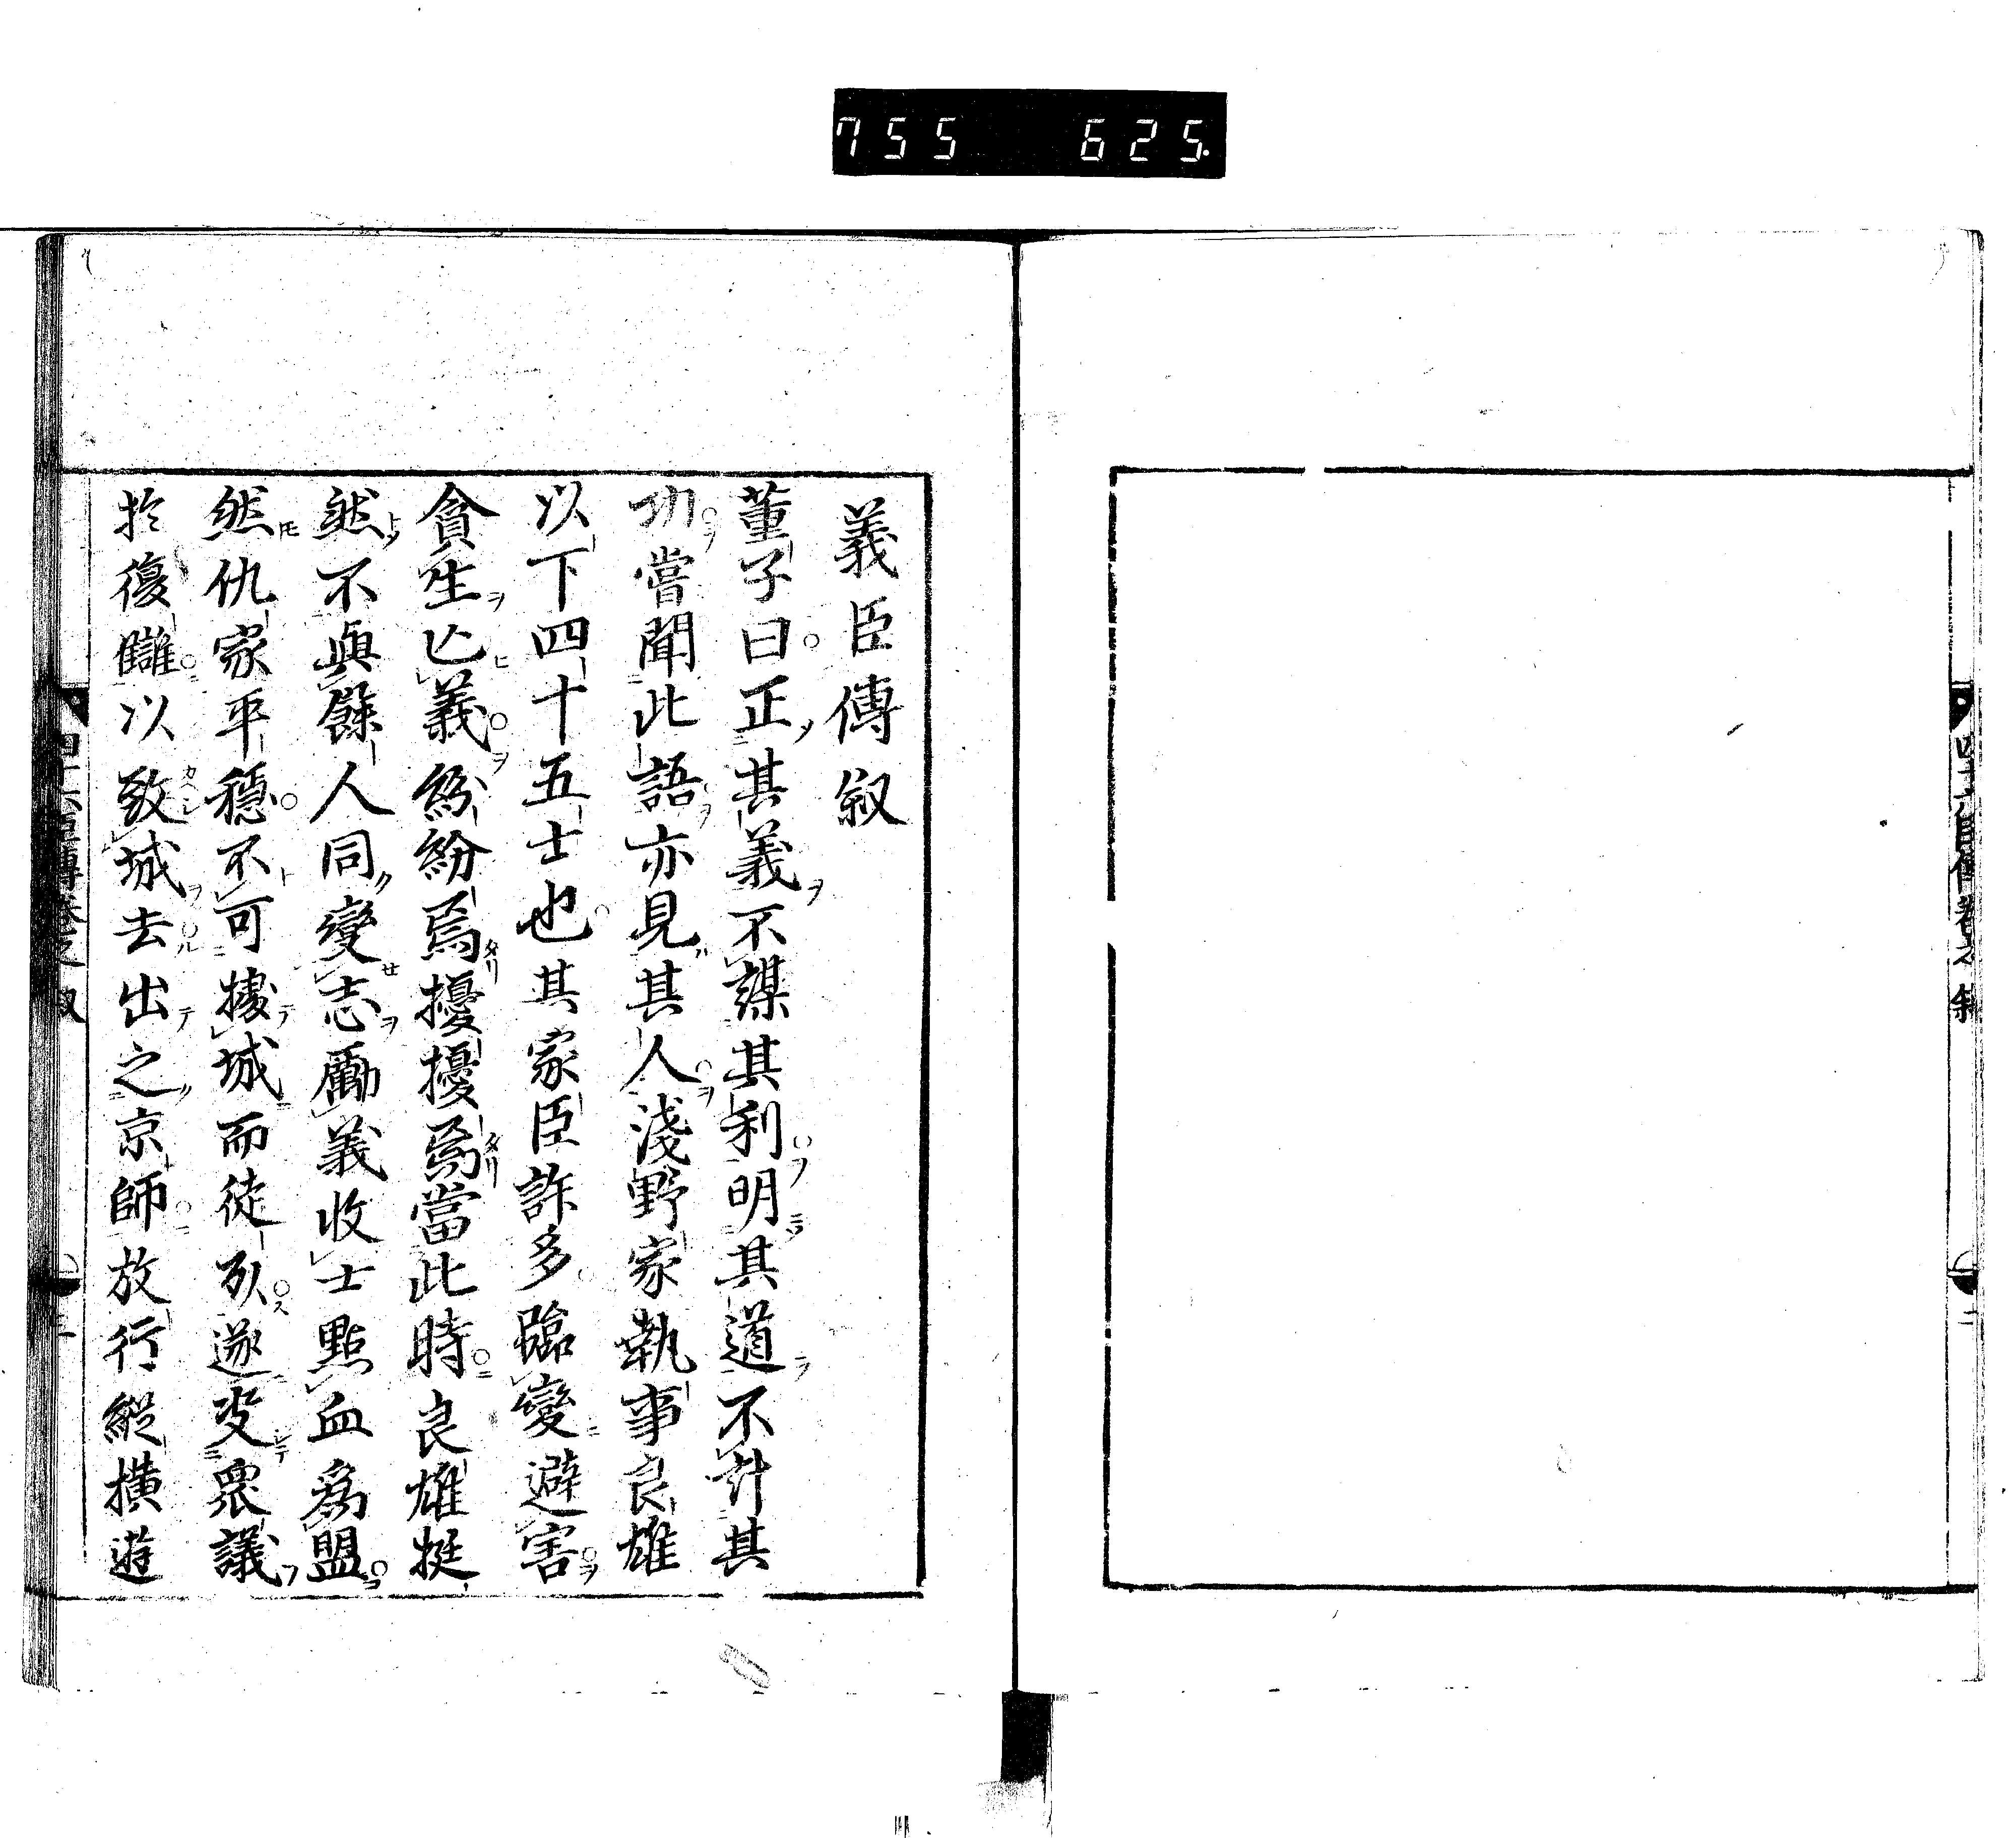 755 625.
義臣傳叙
董子曰正其義不謀其利明其道不計其
功嘗聞此語亦見其人淺野家執事良雄
以下四十五士也其家臣許多臨變避害
貪生亡義紛紛焉擾擾焉當此時良雄挺
然不與餘人同變志勵義收士點血爲盟
然仇家平穩不可據城而徒死遂変衆議
於復讎以致城去出之京師放行縱橫遊